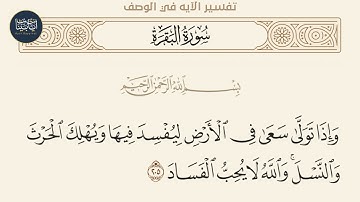 تفسير الآيه في الوصف
سُورَةُ البَقَرَةِ
بِسْمِ ٱللَّهِ ٱلرَّحْمَٰنِ ٱلرَّحِيمِ
وَإِذَا تَوَلَّىٰ سَعَىٰ فِي ٱلْأَرْضِ لِيُفْسِدَ فِيهَا وَيُهْلِكَ ٱلْحَرْثَ
وَٱلنَّسْلَۚ وَٱللَّهُ لَا يُحِبُّ ٱلْفَسَادَ ٢٠٥